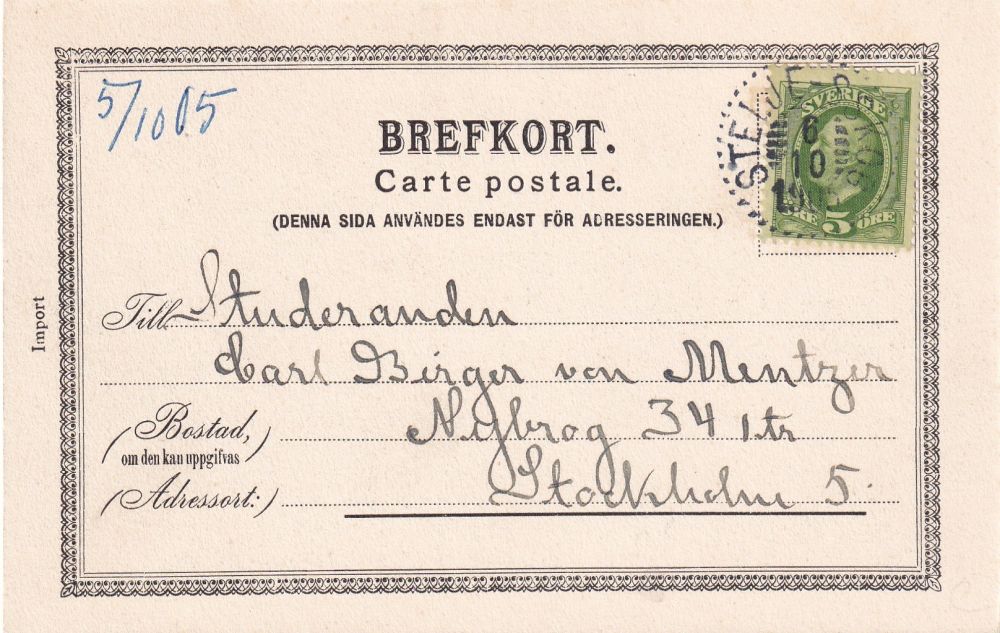 5/10 05
BREFKORT.
Carte postale.
(DENNA SIDA ANVÄNDES ENDAST FÖR ADRESSERINGEN.)
SVERIGE
6
10
19
5 ÖRE
Import
Till Studeranden
Carl Birger von Mentzer
(Bostad, om den kan uppgifvas) Nybrog 34 1 tr
(Adressort:) Stockholm 5.